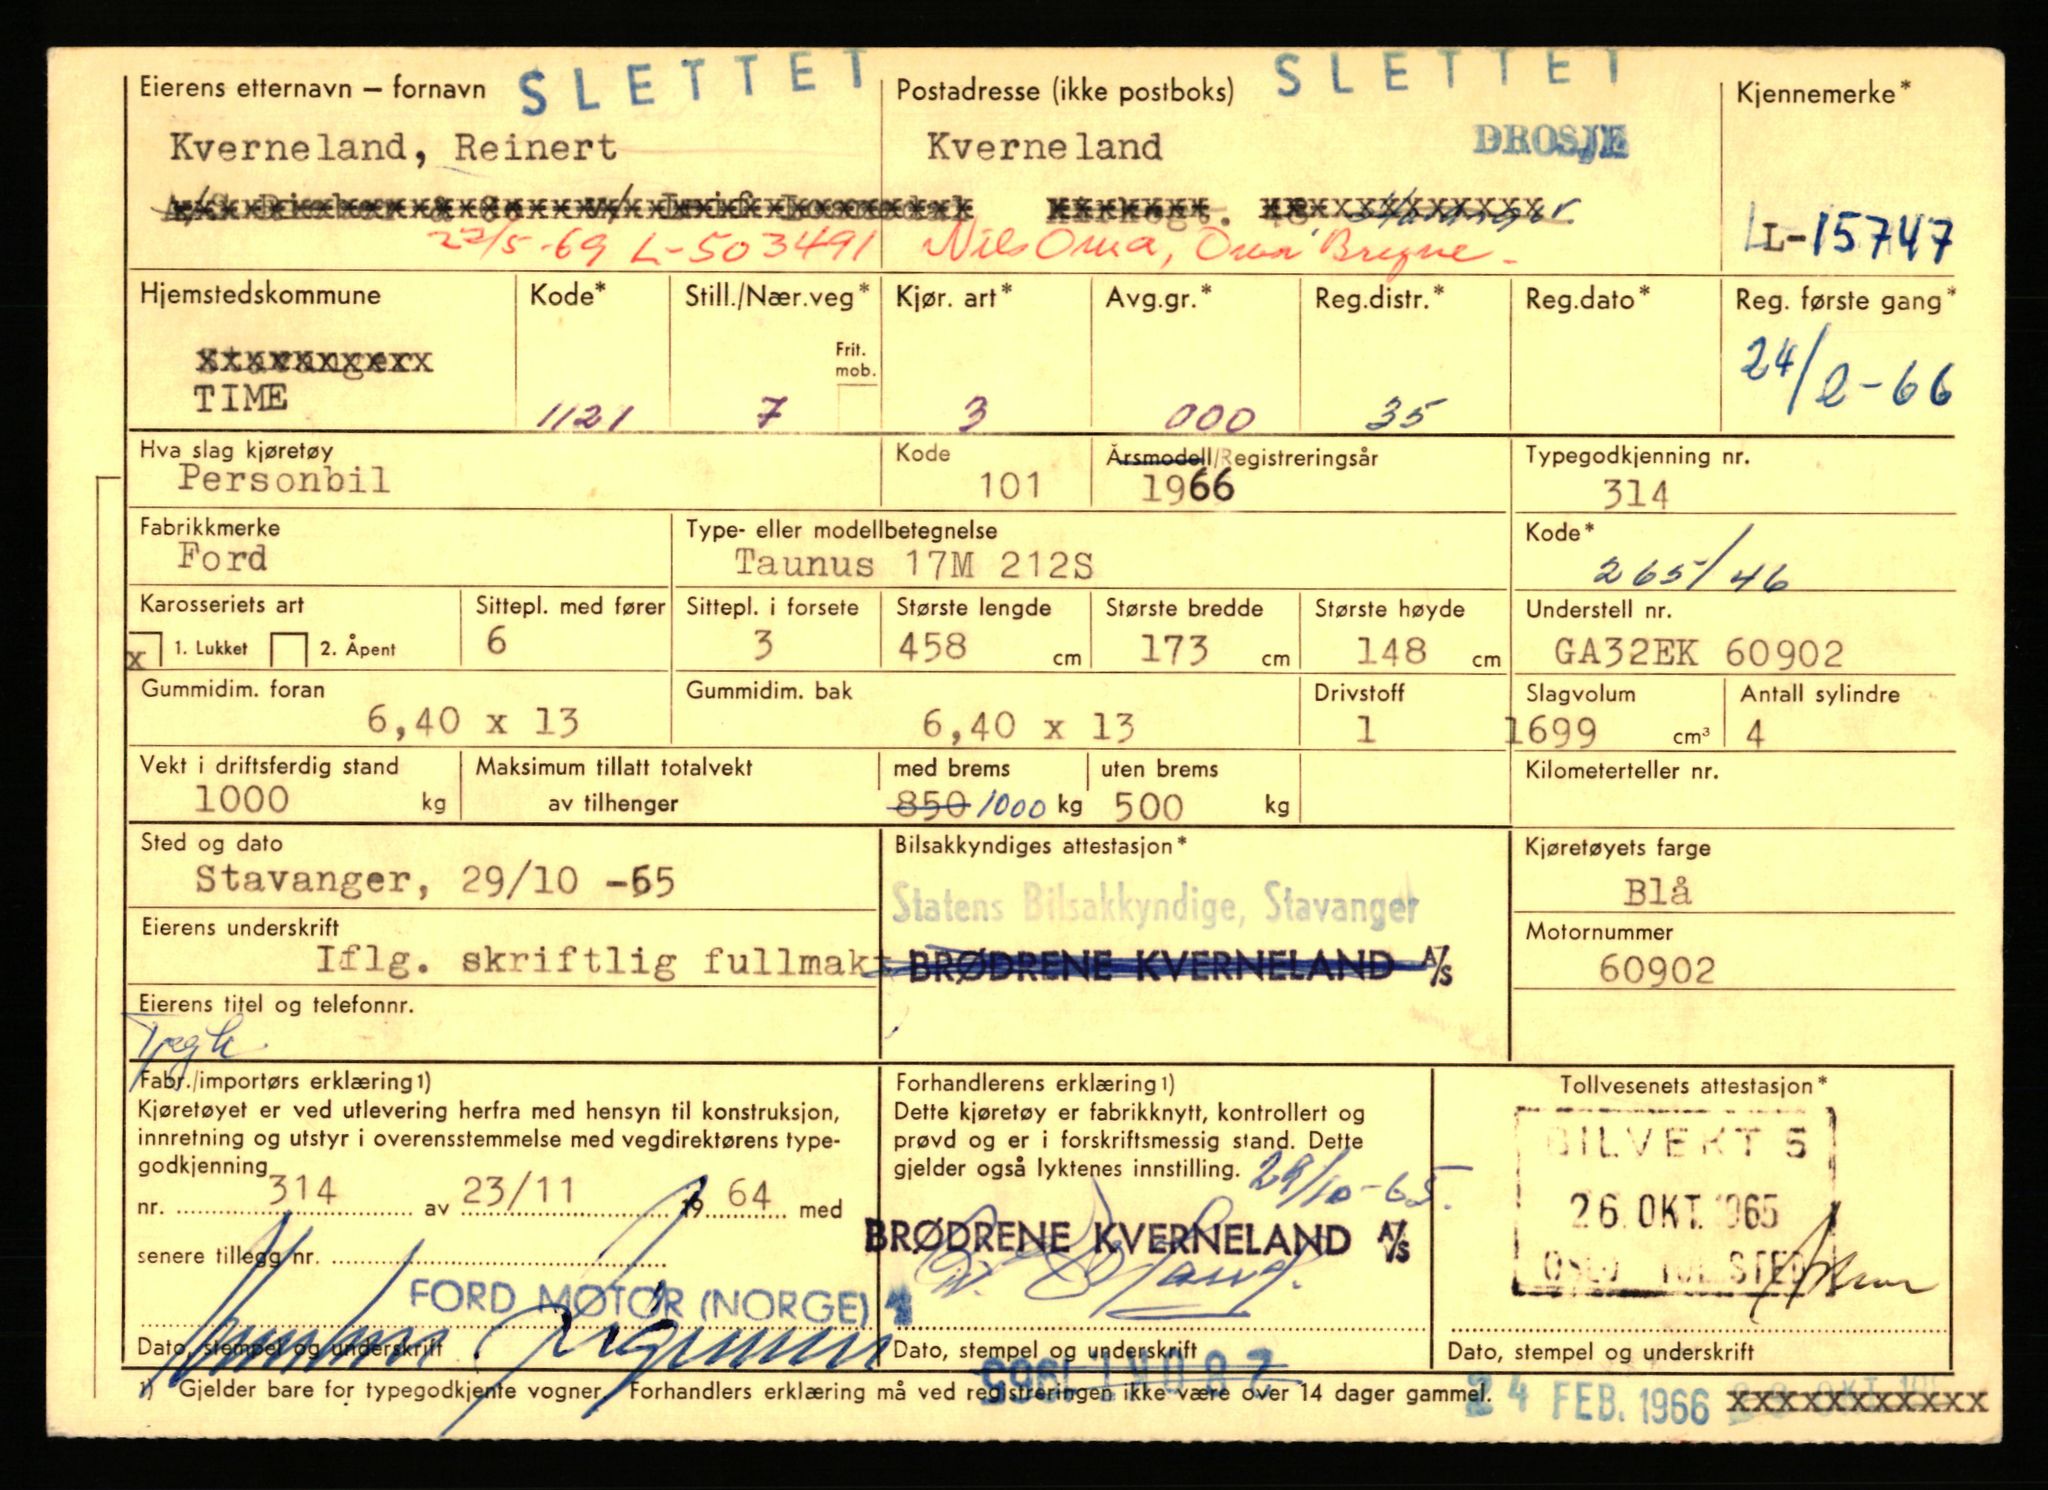 SLETTET SLETTET
Eierens etternavn – fornavn Postadresse (ikke postboks) Kjennemerke*
Kverneland, Reinert Kverneland DROSJE
22/5-69 L-503491 Nils Oma, Bryne. L-15747
Hjemstedskommune Kode* Still./Nær.veg* Kjør. art* Avg.gr.* Reg.distr.* Reg.dato* Reg. første gang*
Frit. mob.
Stavanger
TIME 1121 7 3 000 35 24/2-66
Hva slag kjøretøy Kode Årsmodell/Registreringsår Typegodkjenning nr.
Personbil 101 1966 314
Fabrikkmerke Type- eller modellbetegnelse Kode*
Ford Taunus 17M 212S 265/46
Karosseriets art Sittepl. med fører Sittepl. i forsete Største lengde Største bredde Største høyde Understell nr.
x 1. Lukket 2. Åpent 6 3 458 cm 173 cm 148 cm GA32EK 60902
Gummidim. foran Gummidim. bak Drivstoff Slagvolum Antall sylindre
6,40 x 13 6,40 x 13 1 1699 cm³ 4
Vekt i driftsferdig stand Maksimum tillatt totalvekt med brems uten brems Kilometerteller nr.
1000 kg av tilhenger 850 1000 kg 500 kg
Sted og dato Bilsakkyndiges attestasjon* Kjøretøyets farge
Stavanger, 29/10 -65 Statens Bilsakkyndige, Stavanger Blå
Eierens underskrift Motornummer
Iflg. skriftlig fullmakt BRØDRENE KVERNELAND A/S 60902
Eierens titel og telefonnr.
Fabr./importørs erklæring 1) Forhandlerens erklæring 1) Tollvesenets attestasjon*
Kjøretøyet er ved utlevering herfra med hensyn til konstruksjon, Dette kjøretøy er fabrikknytt, kontrollert og
innretning og utstyr i overensstemmelse med vegdirektørens type- prøvd og er i forskriftsmessig stand. Dette
godkjenning gjelder også lyktenes innstilling. 29/10-65.
BILVEKT S
nr. 314 av 23/11 19 64 med 26. OKT. 1965
senere tillegg nr. BRØDRENE KVERNELAND A/S OSLO TOLLSTED
FORD MOTOR (NORGE)
Dato, stempel og underskrift Dato, stempel og underskrift Dato, stempel og underskrift
1) Gjelder bare for typegodkjente vogner. Forhandlers erklæring må ved registreringen ikke være over 14 dager gammel.
24 FEB. 1966 xxxxxxxxxxx